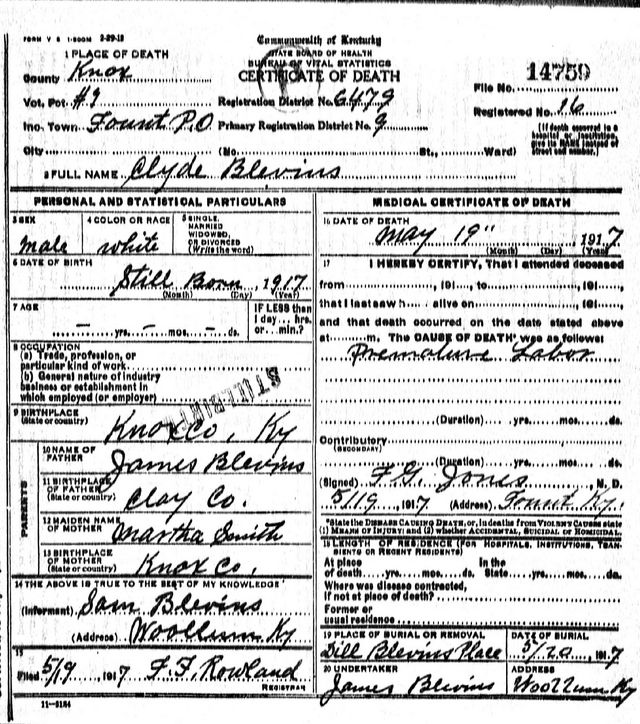 FORM V S 1-500M 2-29-12
Commonwealth of Kentucky
STATE BOARD OF HEALTH
BUREAU OF VITAL STATISTICS
CERTIFICATE OF DEATH
1 PLACE OF DEATH
County Knox
Vot. Pct. #9
Inc. Town Fount P.O.
City
Registration District No. 6479
Primary Registration District No. 9
(No. St., Ward)
File No. 14759
Registered No. 16
(If death occurred in a hospital or institution, give its NAME instead of street and number.)
2 FULL NAME Clyde Blevins
PERSONAL AND STATISTICAL PARTICULARS
3 SEX
male
4 COLOR OR RACE
white
5 SINGLE, MARRIED WIDOWED, OR DIVORCED (Write the word)
6 DATE OF BIRTH
Still Born 1917
(Month) (Day) (Year)
7 AGE
IF LESS than 1 day... hrs. or... min.?
— yrs. — mos. — ds.
8 OCCUPATION
(a) Trade, profession, or
particular kind of work
(b) General nature of industry
business or establishment in
which employed (or employer)
STILLBIRTH
9 BIRTHPLACE
(State or country)
Knox Co, Ky
PARENTS
10 NAME OF FATHER
James Blevins
11 BIRTHPLACE OF FATHER
(State or country)
Clay Co.
12 MAIDEN NAME OF MOTHER
Martha Smith
13 BIRTHPLACE OF MOTHER
(State or country)
Knox Co.
14 THE ABOVE IS TRUE TO THE BEST OF MY KNOWLEDGE
(Informant) Sam Blevins
(Address) Woollum Ky
15
Filed 5/19 1917 F.F. Rowland
REGISTRAR
11-3184
MEDICAL CERTIFICATE OF DEATH
16 DATE OF DEATH
May 19" 1917
(Month) (Day) (Year)
17 I HEREBY CERTIFY, That I attended deceased
from , 191 , to , 191 ,
that I last saw h alive on , 191 ,
and that death occurred on the date stated above
at m. The CAUSE OF DEATH was as follows:
Premature Labor
(Duration) yrs. mos. ds.
Contributory
(SECONDARY)
(Duration) yrs. mos. ds.
(Signed) F.G. Jones, M. D.
5/19 1917 (Address) Fount Ky.
State the DISEASE CAUSING DEATH, or, in deaths from VIOLENT CAUSES state
(1) MEANS OF INJURY; and (2) whether ACCIDENTAL, SUICIDAL or HOMICIDAL.
18 LENGTH OF RESIDENCE (FOR HOSPITALS, INSTITUTIONS, TRANSIENTS OR RECENT RESIDENTS)
At place of death yrs. mos. ds. In the State yrs. mos. ds.
Where was disease contracted,
if not at place of death?
Former or
usual residence
19 PLACE OF BURIAL OR REMOVAL
Dill Blevins Place
DATE OF BURIAL
5/20, 1917
20 UNDERTAKER
James Blevins
ADDRESS
Woollum Ky